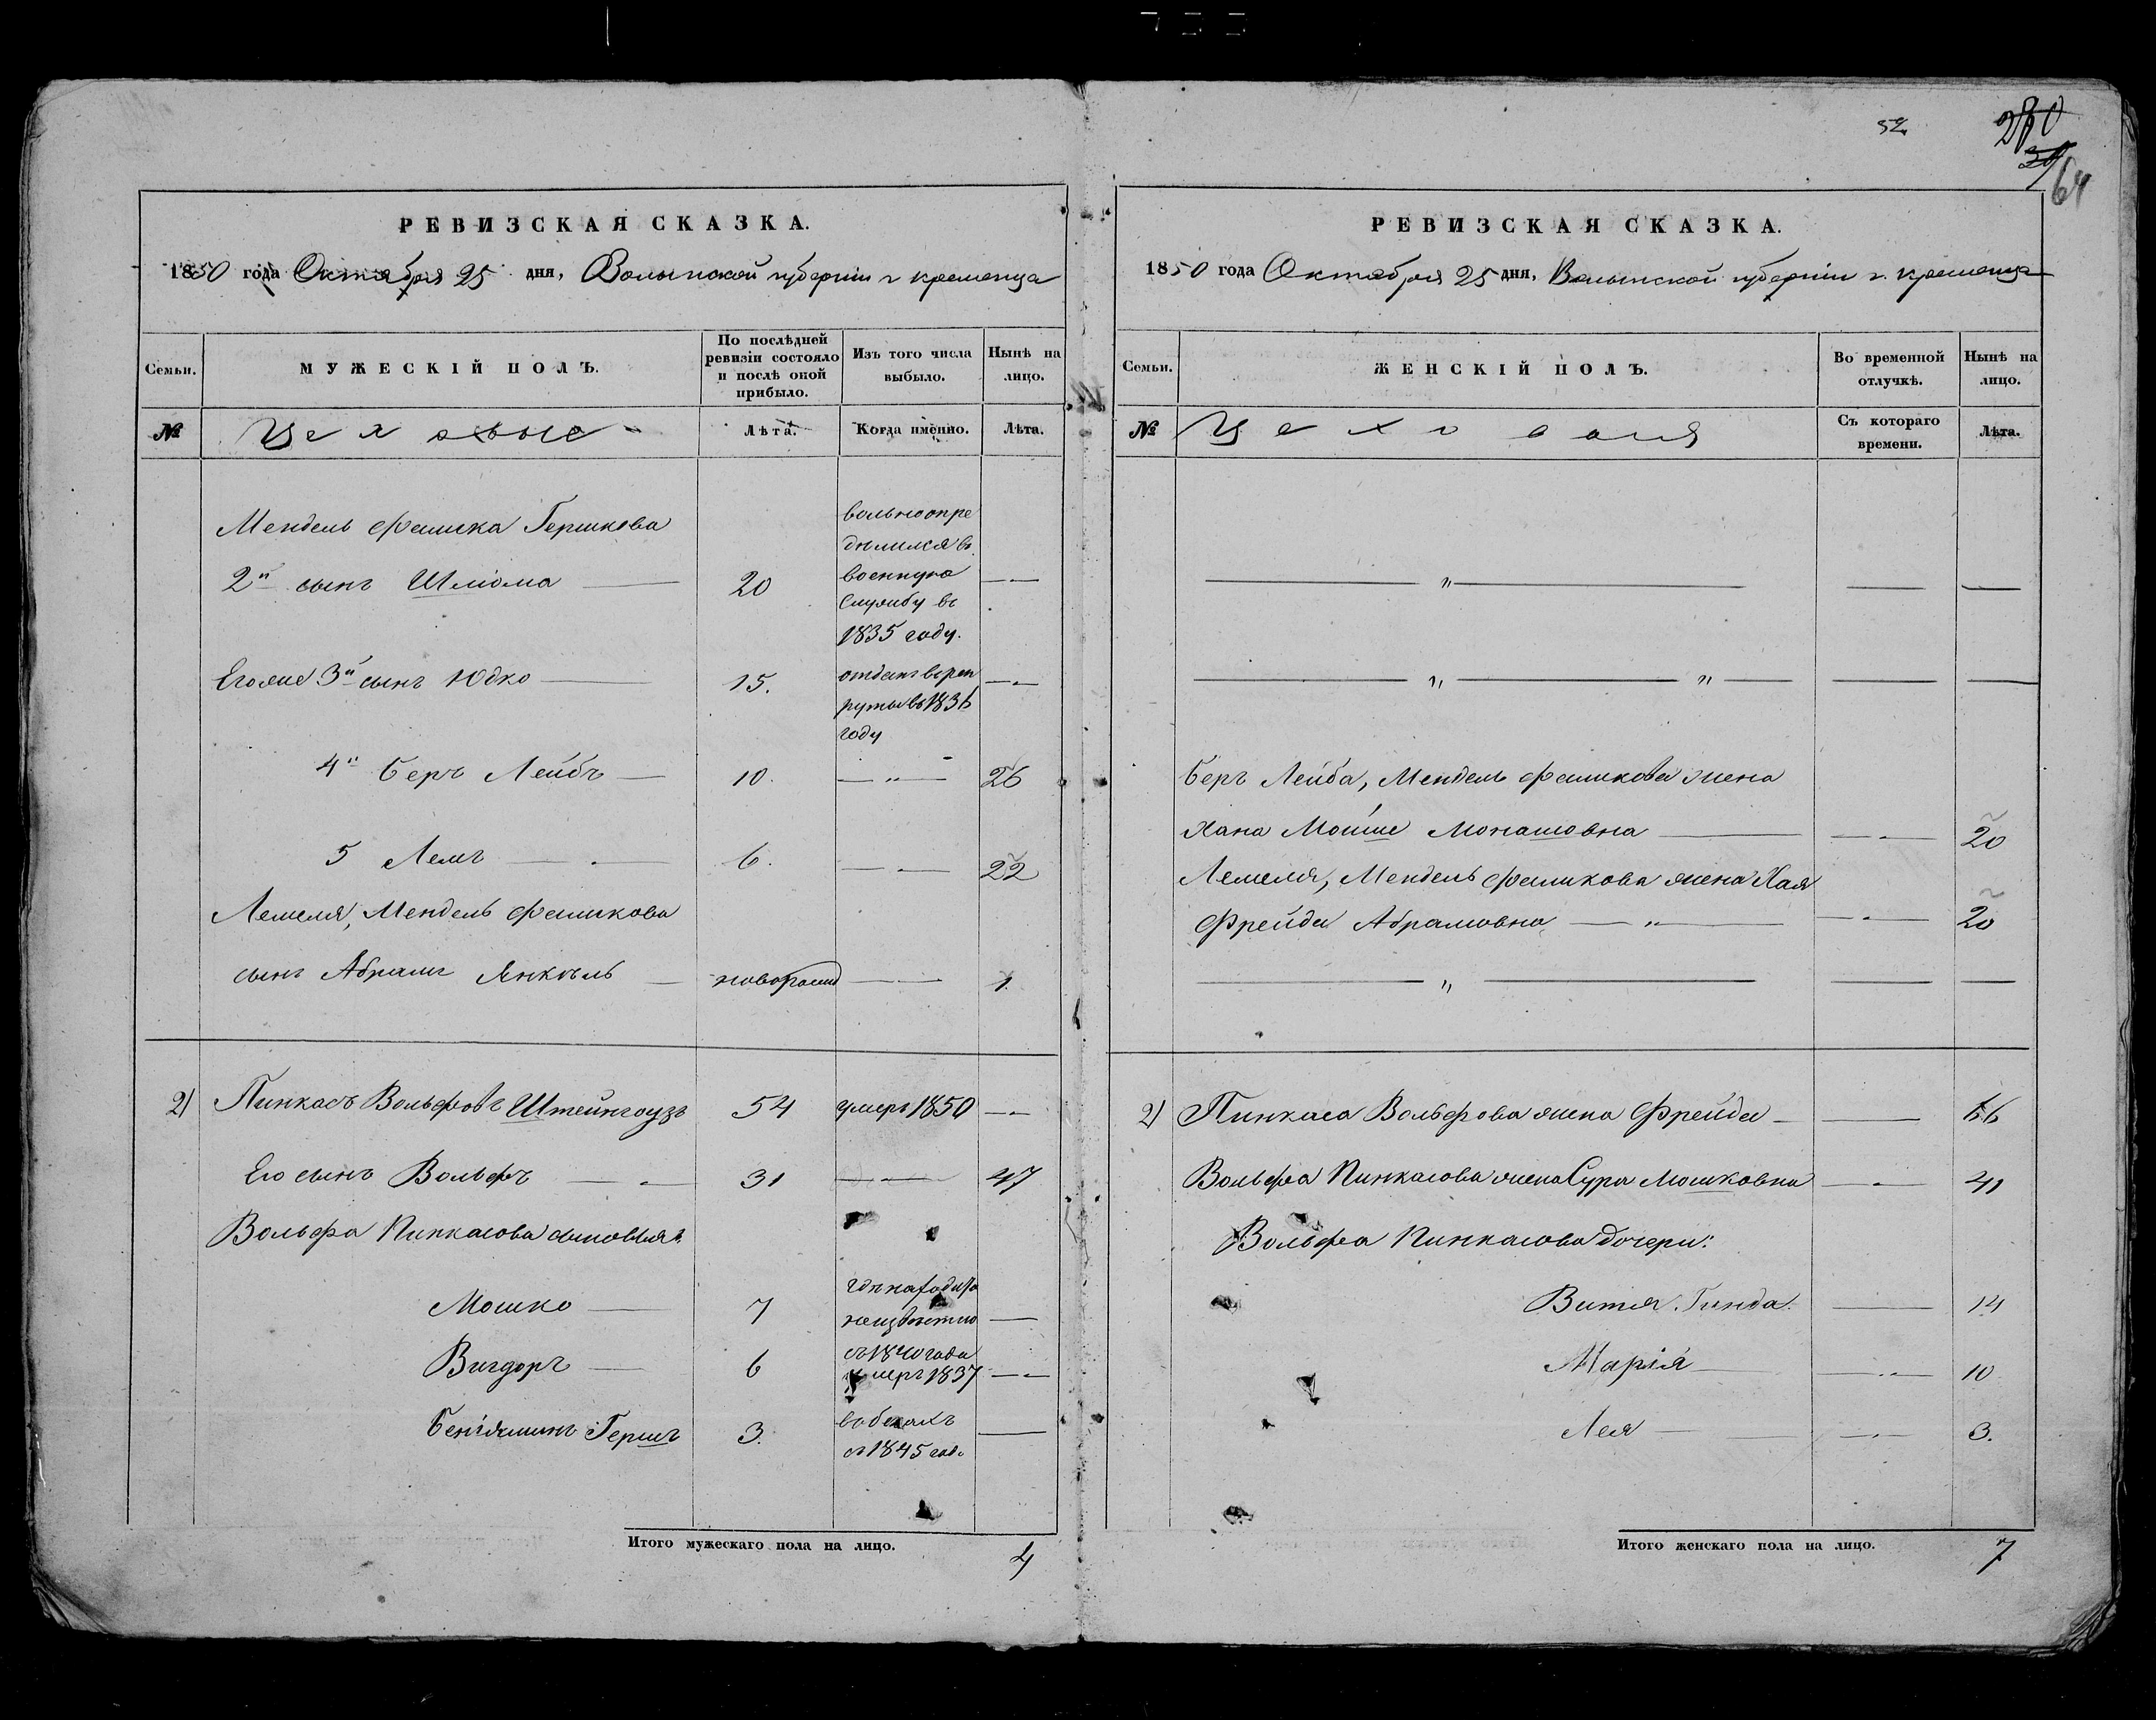 52
280
64
РЕВИЗСКАЯ СКАЗКА.
1850 года Октября 25 дня, Волынской губерніи г кременца
Семьи.
МУЖЕСКІЙ ПОЛЪ.
По послѣдней ревизіи состояло и послѣ оной прибыло.
Изъ того числа выбыло.
Нынѣ на лицо.
№
Цеховые
Лѣта.
Когда именно.
Лѣта.
Мендель Фалика Гершкова
2й сынъ Шліома 20
вольноопре
дѣлился въ
военную
службу въ
1835 году.
Егоже 3й сынъ Юдко 15.
отданъ в рек
руты въ 1836
году
4й Беръ Лейбъ 10. 26
5 Лемъ 6. 22
Лемеля, Мендель Фаликова
сынъ Абрамъ Янкѣль новорожд 1
2) Пинкасъ Вольфовъ Штейнгоузъ 54 умеръ 1850
Его сынъ Вольфъ 31 47
Вольфа Пинкасова сыновья:
Мошко 7
гдѣ находится
неизвѣстно
съ 1840 года
Вигдоръ 6 умеръ 1837
Беніяминъ Гершъ 3.
въ бегахъ
съ 1845 года
Итого мужескаго пола на лицо. 4
РЕВИЗСКАЯ СКАЗКА.
1850 года Октября 25 дня, Волынской губерніи г. кременца
Семьи.
ЖЕНСКІЙ ПОЛЪ.
Во временной отлучкѣ.
Нынѣ на лицо.
№
Цеховая
Съ котораго времени.
Лѣта.
Беръ Лейба, Мендель Фаликова жена
Хана Мойше Монашовна 20
Лемеля, Мендель Фаликова жена Хая
Фрейда Абрамовна 20
2) Пинкаса Вольфова жена Фрейда 66
Вольфа Пинкасова жена Сура Мошковна 41
Вольфа Пинкасова дочери:
Витя Гинда. 14
Марія 10
Лея 3.
Итого женскаго пола на лицо. 7